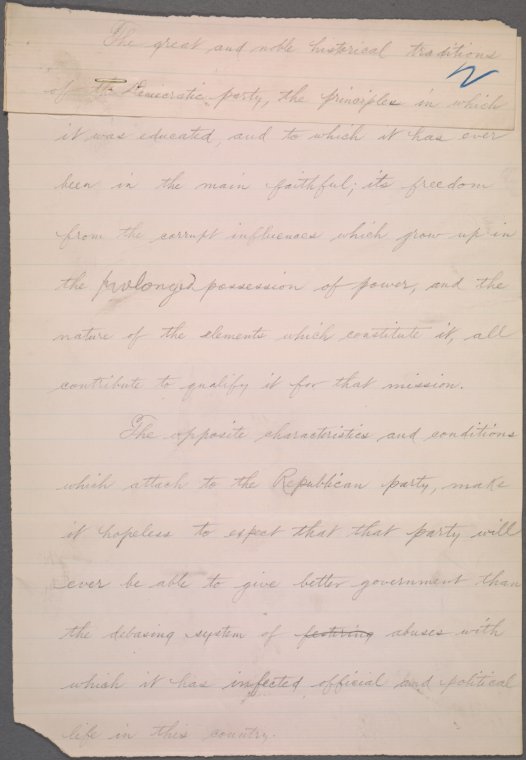 The great and noble historical traditions
of the Democratic party, the principles in which
it was educated, and to which it has ever
been in the main faithful; its freedom
from the corrupt influences which grow up in
the prolonged possession of power, and the
nature of the elements which constitute it, all
contribute to qualify it for that mission.
The opposite characteristics and conditions
which attach to the Republican party, make
it hopeless to expect that that party will
ever be able to give better government than
the debasing system of festering abuses with
which it has infected official and political
life in this country.